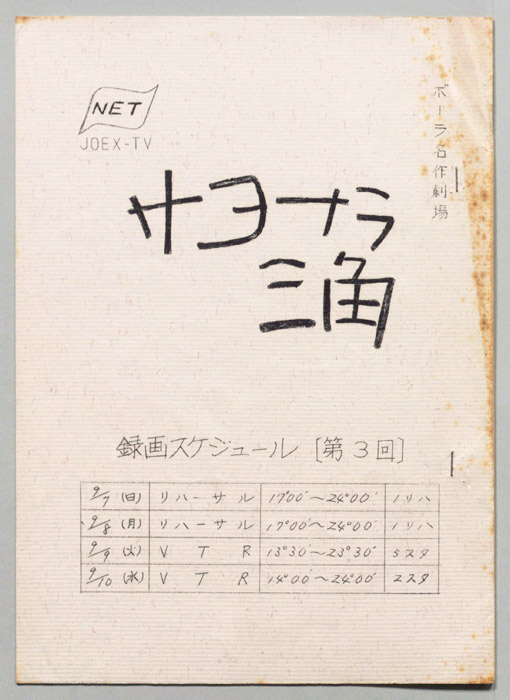 ポーラ名作劇場
NET
JOEX-TV
サヨーナラ
三角
録画スケジュール〔第3回〕
9/7 (日) リハーサル 17°00′～24°00′ 1リハ
9/8 (月) リハーサル 17°00′～24°00′ 1リハ
9/9 (火) VTR 13°30′～23°30′ 5スタ
9/10 (水) VTR 14°00′～24°00′ 2スタ